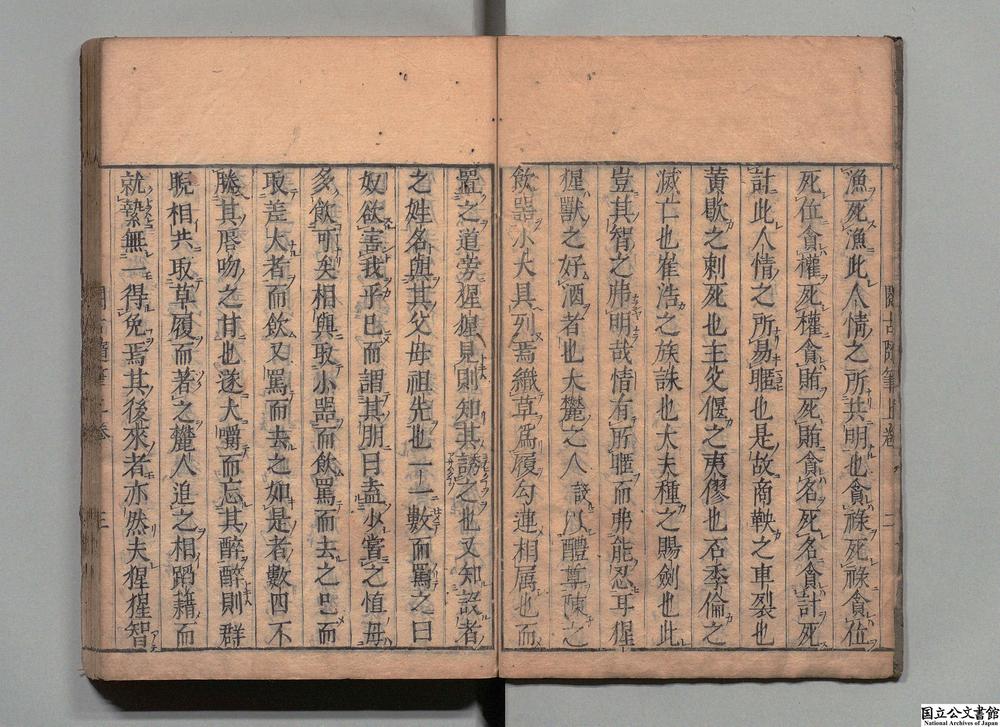 漁死漁此人情之所共明也貪祿死祿貪位
死位貪權死權貪賄死賄貪名死名貪計死
計此人情之所易眶也是故商鞅之車裂也
黄歇之刺死也主父偃之夷僇也石季倫之
滅亡也崔浩之族誅也大夫種之賜劍也此
豈其智之弗明哉情有所眶而弗能忍耳猩
猩獸之好酒者也大麓之人設以醴尊陳之
飲器小大具列焉織草爲履勾連相属也而
置之道旁猩猩見則知其誘之也又知設者
之姓名與其父母祖先也一一數而罵之曰
奴欲害我乎已而謂其朋曰盍少嘗之愼毋
多飲可矣相與取小器而飲罵而去之已而
取差大者而飲又罵而去之如是者數四不
勝其唇吻之甘也遂大嚼而忘其醉醉則群
睨相共取草履而著之麓人追之相蹈籍而
就縶無一得免焉其後來者亦然夫猩猩智
閲古隨筆上卷 二
閲古隨筆上卷 三
国立公文書館
National Archives of Japan